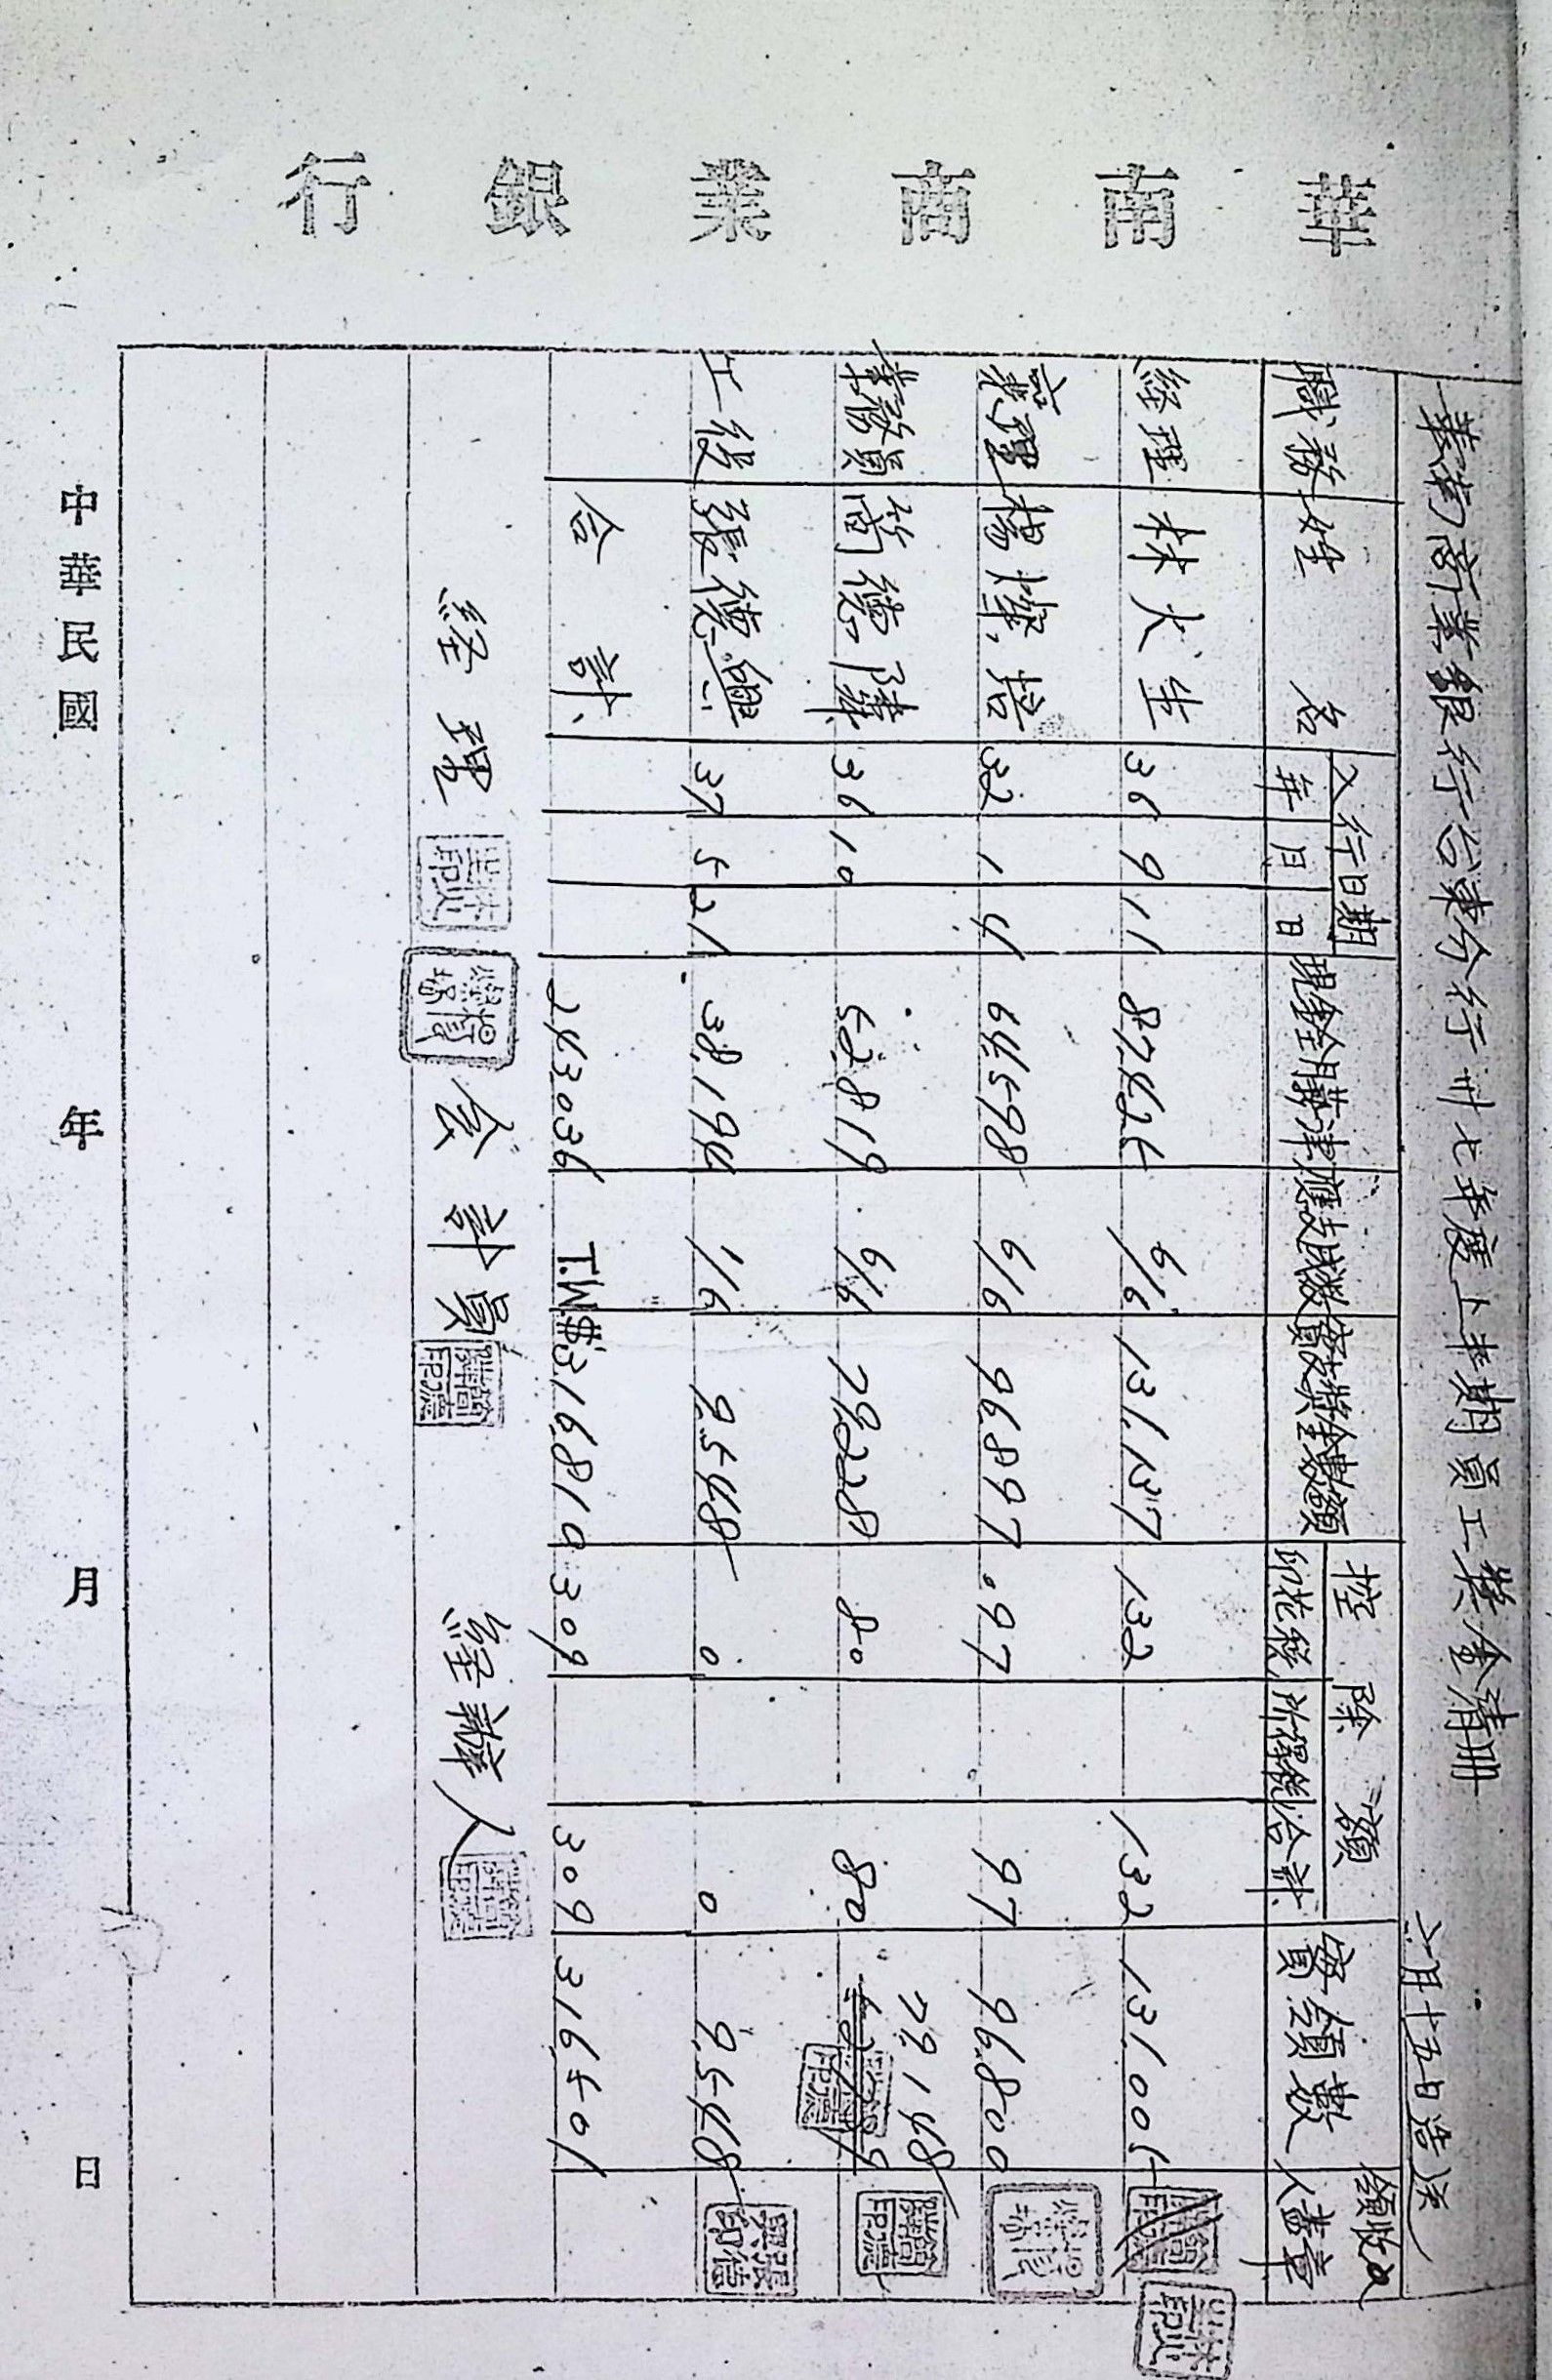 華南商業銀行
華南商業銀行台東分行卅七年度上半期員工獎金清冊
六月十五日造送
職務 姓名 入行日期 年 月 日 現金月薪津 應支成數 實支獎金數額 扣除額 印花稅 所得稅 合計 實領數 領收人蓋章
經理 林火生 36 9 11 87.425 6/6 131.137 132 132 131.005
襄理 楊燦培 32 1 4 64.598 6/6 96.897 97 97 96.800
業務員 簡德隆 36 10 52.819 6/6 79.228 80 80 79.148
工役 張德興 37 5 21 38.194 1/6 9.548 0 0 9.548
合計 243.036 T.W.$316.810 309 309 316.501
經理 會計員 經辦人
中華民國 年 月 日